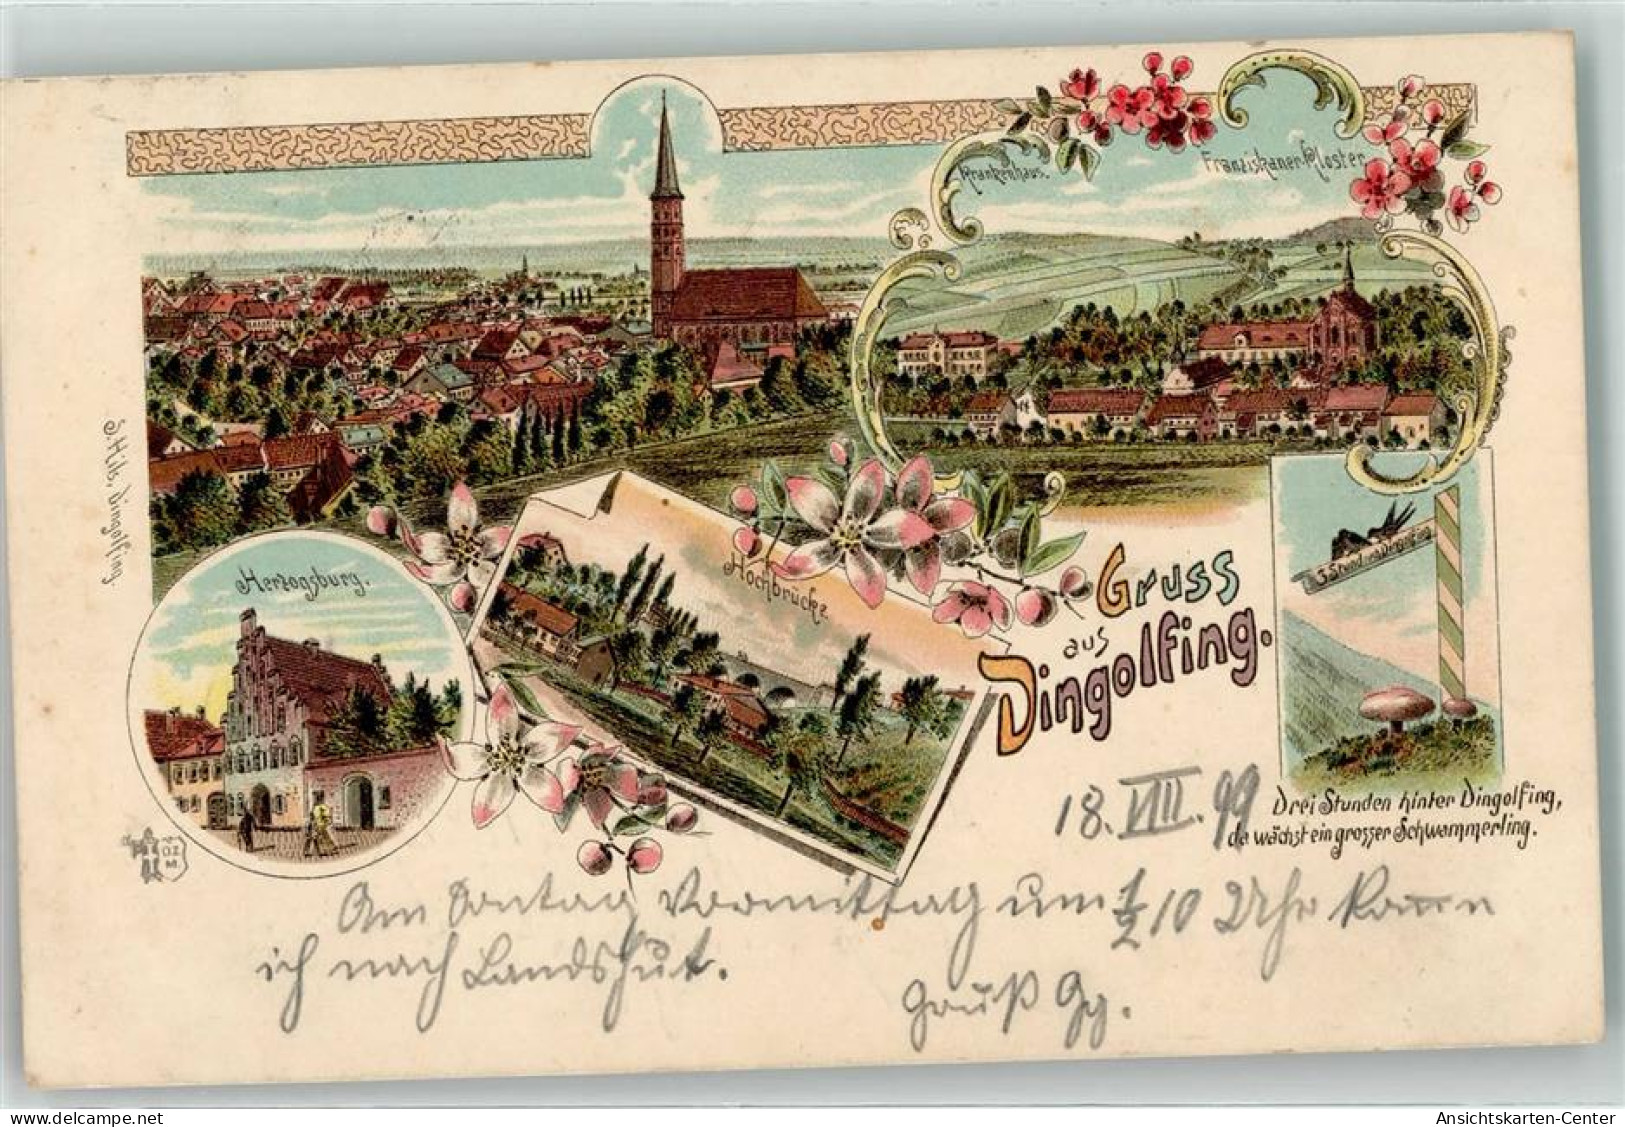 Krankenhaus.
Franziskaner-Kloster
Herzogsburg.
Hochbrücke.
Gruss
aus
Dingolfing.
3 Stund nach Dingolfing
Drei Stunden hinter Dingolfing,
da wächst ein grosser Schwammerling.
OZ
M.
Dingolfing.
18. VIII. 99
Am Sontag Vormittag um 1/2 10 Uhr komm
ich nach Landshut.
Gruß Gg.
Ansichtskarten-Center
delcampe.net